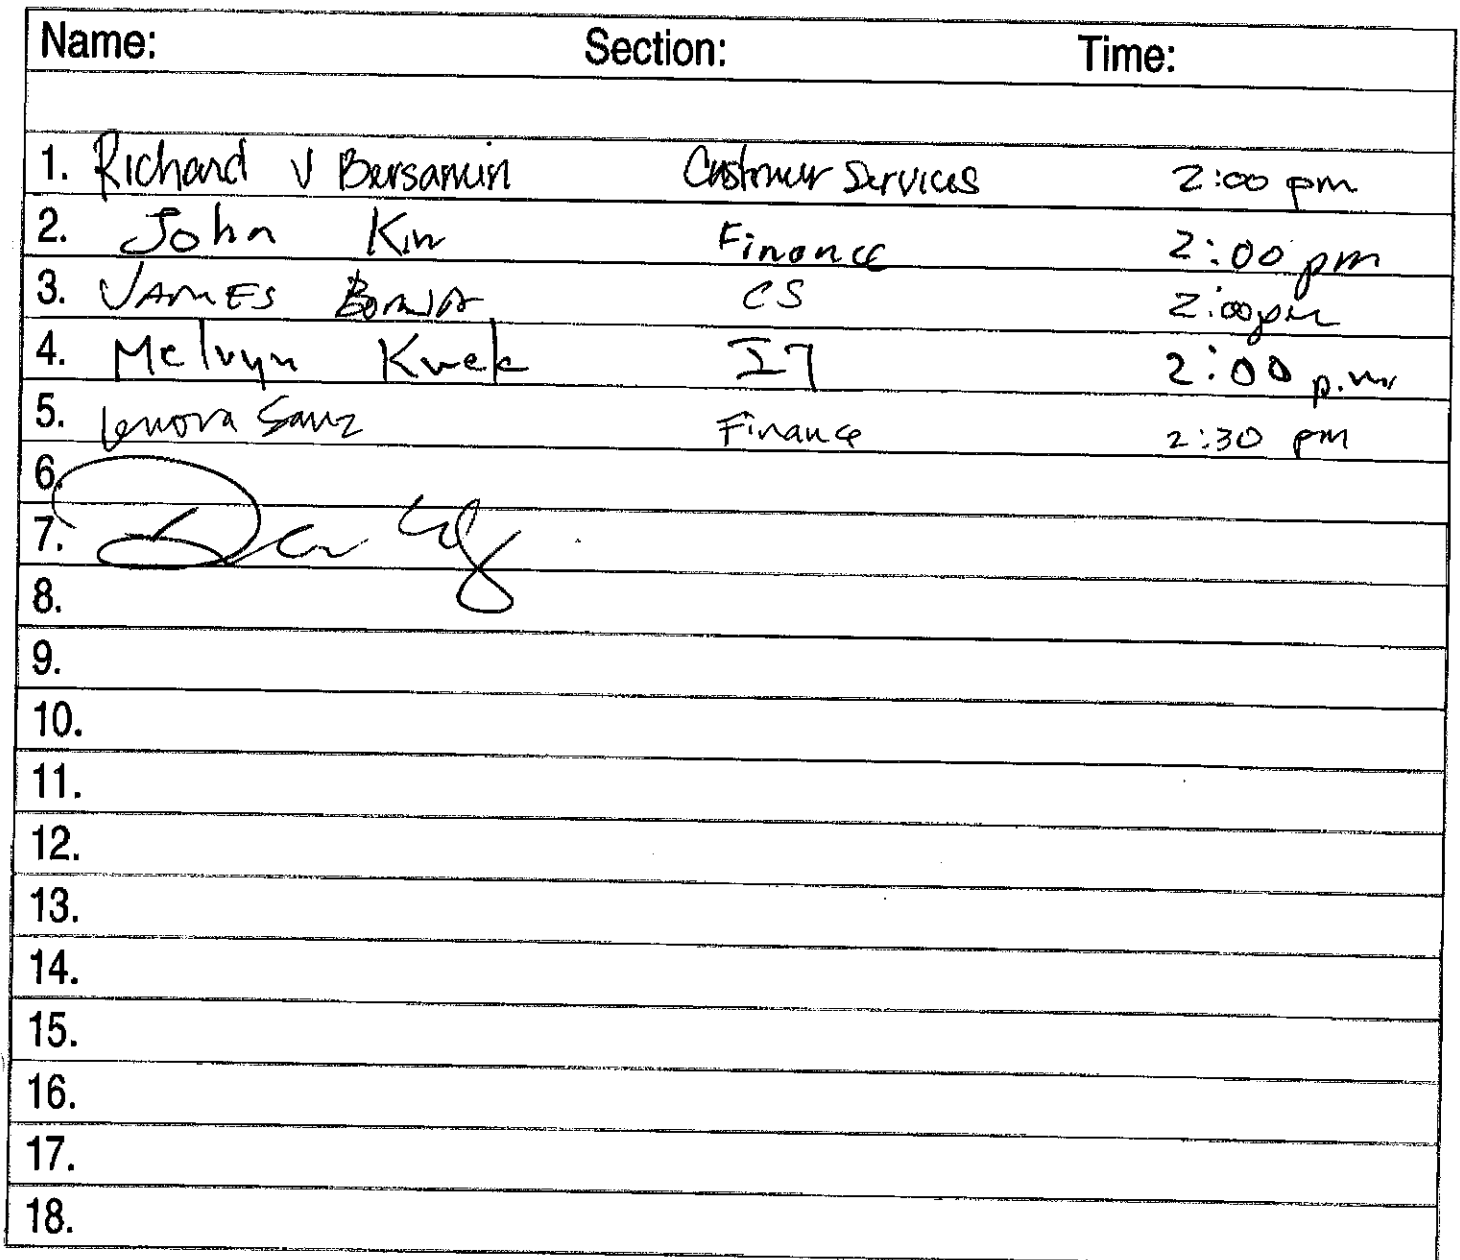 Name: Section: Time:
1. Richard V Bersamin Customer Services 2:00 pm
2. John Kin Finance 2:00 pm
3. JAMES CS 2:00pm
4. Melvyn Kwek IT 2:00 p.m.
5. Lenora Sanz Finance 2:30 pm
6.
7.
8.
9.
10.
11.
12.
13.
14.
15.
16.
17.
18.